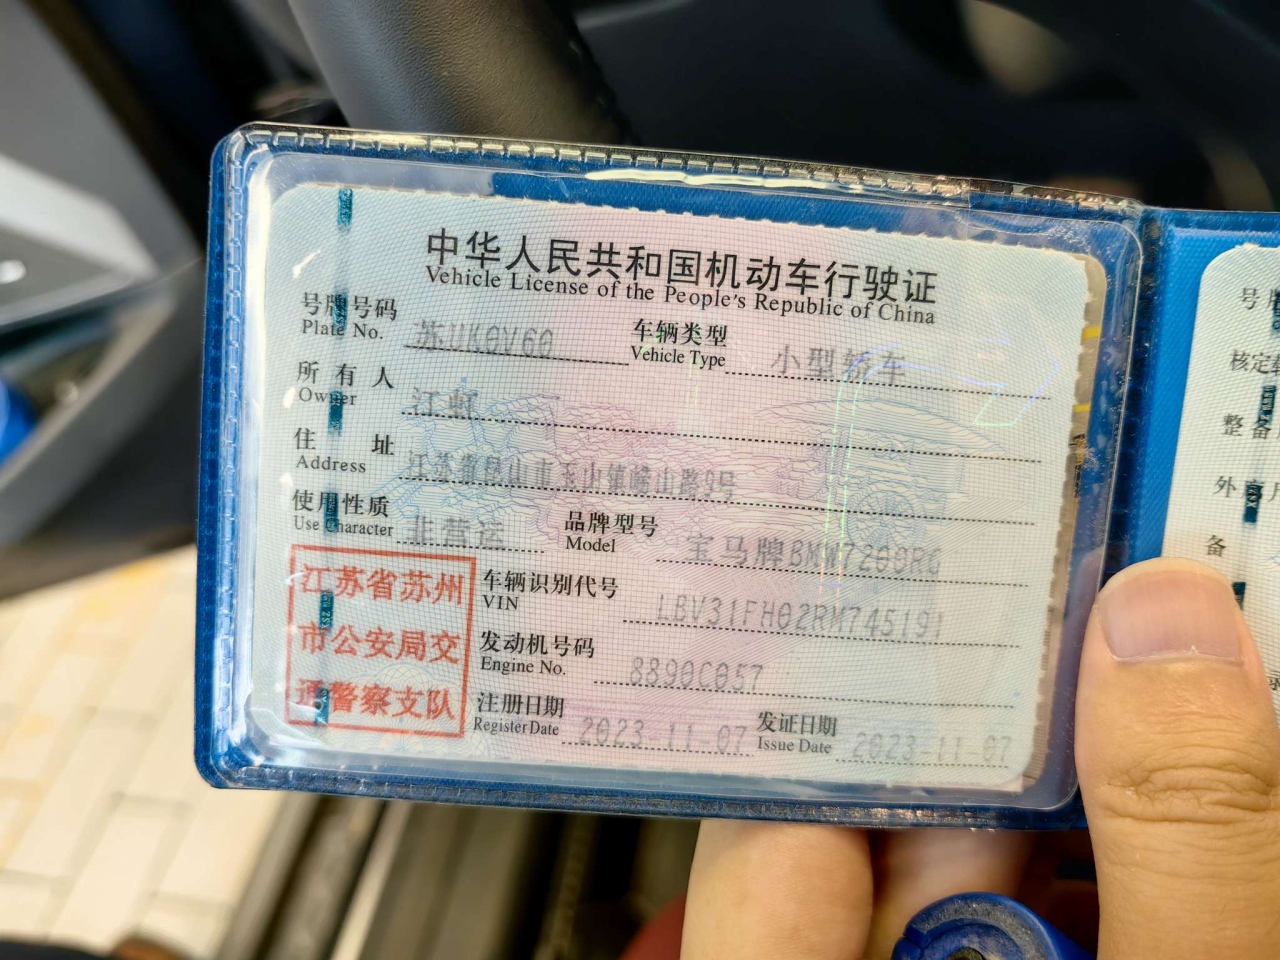 中华人民共和国机动车行驶证
Vehicle License of the People's Republic of China
号牌号码 苏UK0V60 车辆类型 小型轿车
Plate No. Vehicle Type
所有人 江虹
Owner
住址 江苏省昆山市玉山镇崂山路9号
Address
使用性质 非营运 品牌型号 宝马牌BMW7200RG
Use Character Model
江苏省苏州
市公安局交
通警察支队
车辆识别代号 LBV31FH02RM745191
VIN
发动机号码 8890C057
Engine No.
注册日期 2023-11-07 发证日期 2023-11-07
Register Date Issue Date
号
核定
整备
外
备